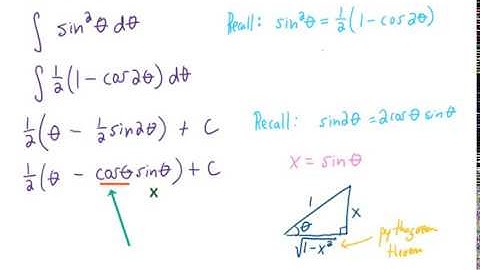 ∫ sin²θ dθ
Recall: sin²θ = ½(1 − cos2θ)
∫ ½(1 − cos2θ) dθ
½(θ − ½ sin2θ) + C
Recall: sin2θ = 2cosθ sinθ
½(θ − cosθ sinθ) + C
x
x = sinθ
1
x
θ
√1−x²
pythagorean
theorem